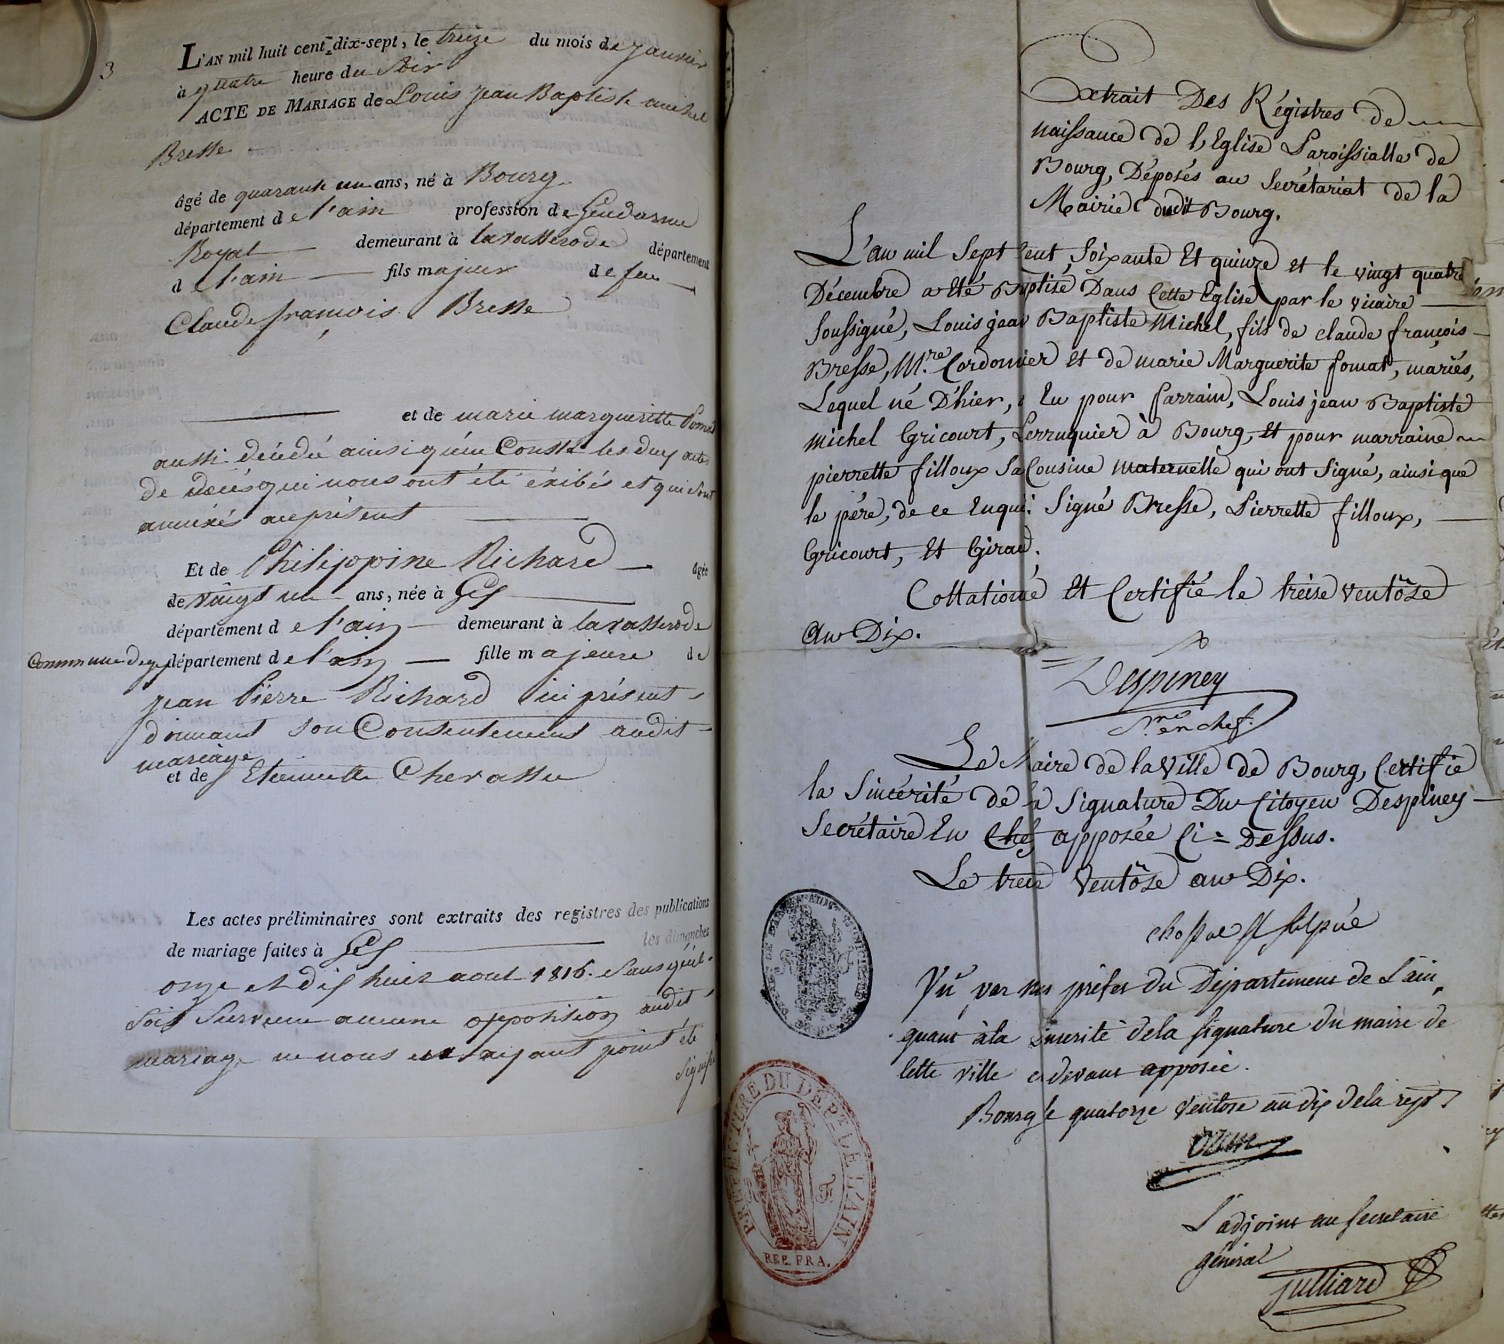 3
L'AN mil huit cent dix-sept, le treize du mois de janvier
à quatre heure du Soir
ACTE DE MARIAGE de Louis jean Baptiste michel
Bresse
âgé de quarante un ans, né à Bourg
département de l'ain profession de Gendarme
Royal demeurant à lavasserode département
d l'ain fils majeur de feu
Claude francois Bresse
et de marie marguerite fomat
aussi décédé ainsi qu'en Conste les deux actes
de décès qui nous ont été éxibés et qui sont
annéxés au présent
Et de Philippine Richard âgée
de vingt un ans, née à Gex
département de l'ain demeurant à lavasserode
Commune de gex département de l'ain fille majeure de
jean Pierre Richard ici présent
donnant son Consentement audit
mariage
et de Etiennette Chevassu
Les actes préliminaires sont extraits des registres des publications
de mariage faites à Gex les dimanches
onze et dix huit aout 1816. sans qu'il
soit Survenu aucune opposition audit
mariage ne nous en ayant point été
signifié
Extrait Des Régistres de
naissance de l'Eglise Paroissialle de
Bourg, Déposés au Secrétariat de la
Mairie dudit Bourg.
L'an mil Sept Cent Soixante Et quinze et le vingt quatre
Décembre a Eté Baptisé Dans Cette Eglise par le vicaire
Soussigné, Louis jean Baptiste Michel, fils de claude françois
Bresse, M.re Cordonnier et de marie Marguerite fomat, mariés,
Lequel né D'hier, a Eu pour Parrain, Louis jean Baptiste
michel Gricourt, Perruquier à Bourg, Et pour marraine
pierrette filloux Sa Cousine maternelle qui ont Signé, ainsi que
le pére, de ce Enqui. Signé Bresse, Pierrette filloux,
Gricourt, Et Giraud.
Collationné Et Certifié le treise ventôse
an Dix.
Despiney
S.re en chef.
Le Maire de la Ville de Bourg, Certifie
la Sincérité de la Signature Du Citoyen Despiney
Secrétaire En Chef apposée Ci=Dessus.
Le treize Ventôse an Dix.
Vû par nous préfet du Département de L'ain,
quant à la sincerité de la signature du maire de
cette ville cidevant apposée.
Bourg le quatorze Ventose an dix de la rep.
ozun
L'adjoint au secretaire
général
Julliard
PREFECTURE DU DEPT. DE L'AIN
REP. FRA.